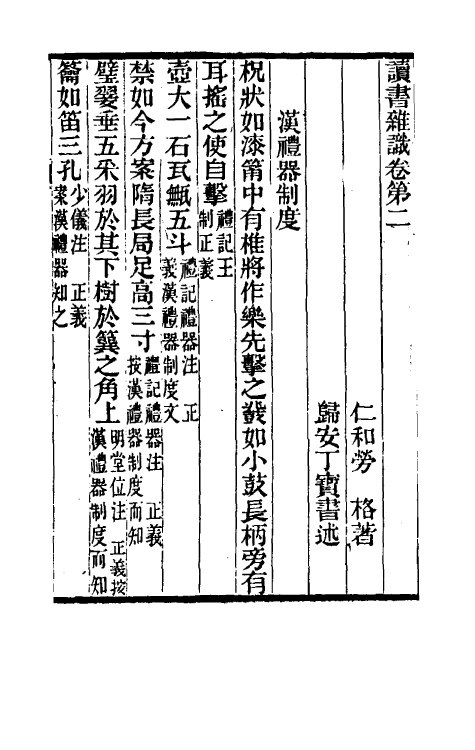 讀書雜識卷第二
仁和勞　格著
歸安丁寶書述
漢禮器制度
柷狀如漆筩中有椎將作樂先擊之鼗如小鼓長柄旁有
耳搖之使自擊禮記王制正義
壺大一石瓦甒五斗禮記禮器注　正義漢禮器制度文
禁如今方案隋長局足高三寸禮記禮器注　正義按漢禮器制度而知
璧翣垂五采羽於其下樹於簨之角上明堂位注　正義按漢禮器制度而知
籥如笛三孔少儀注　正義案漢禮器知之